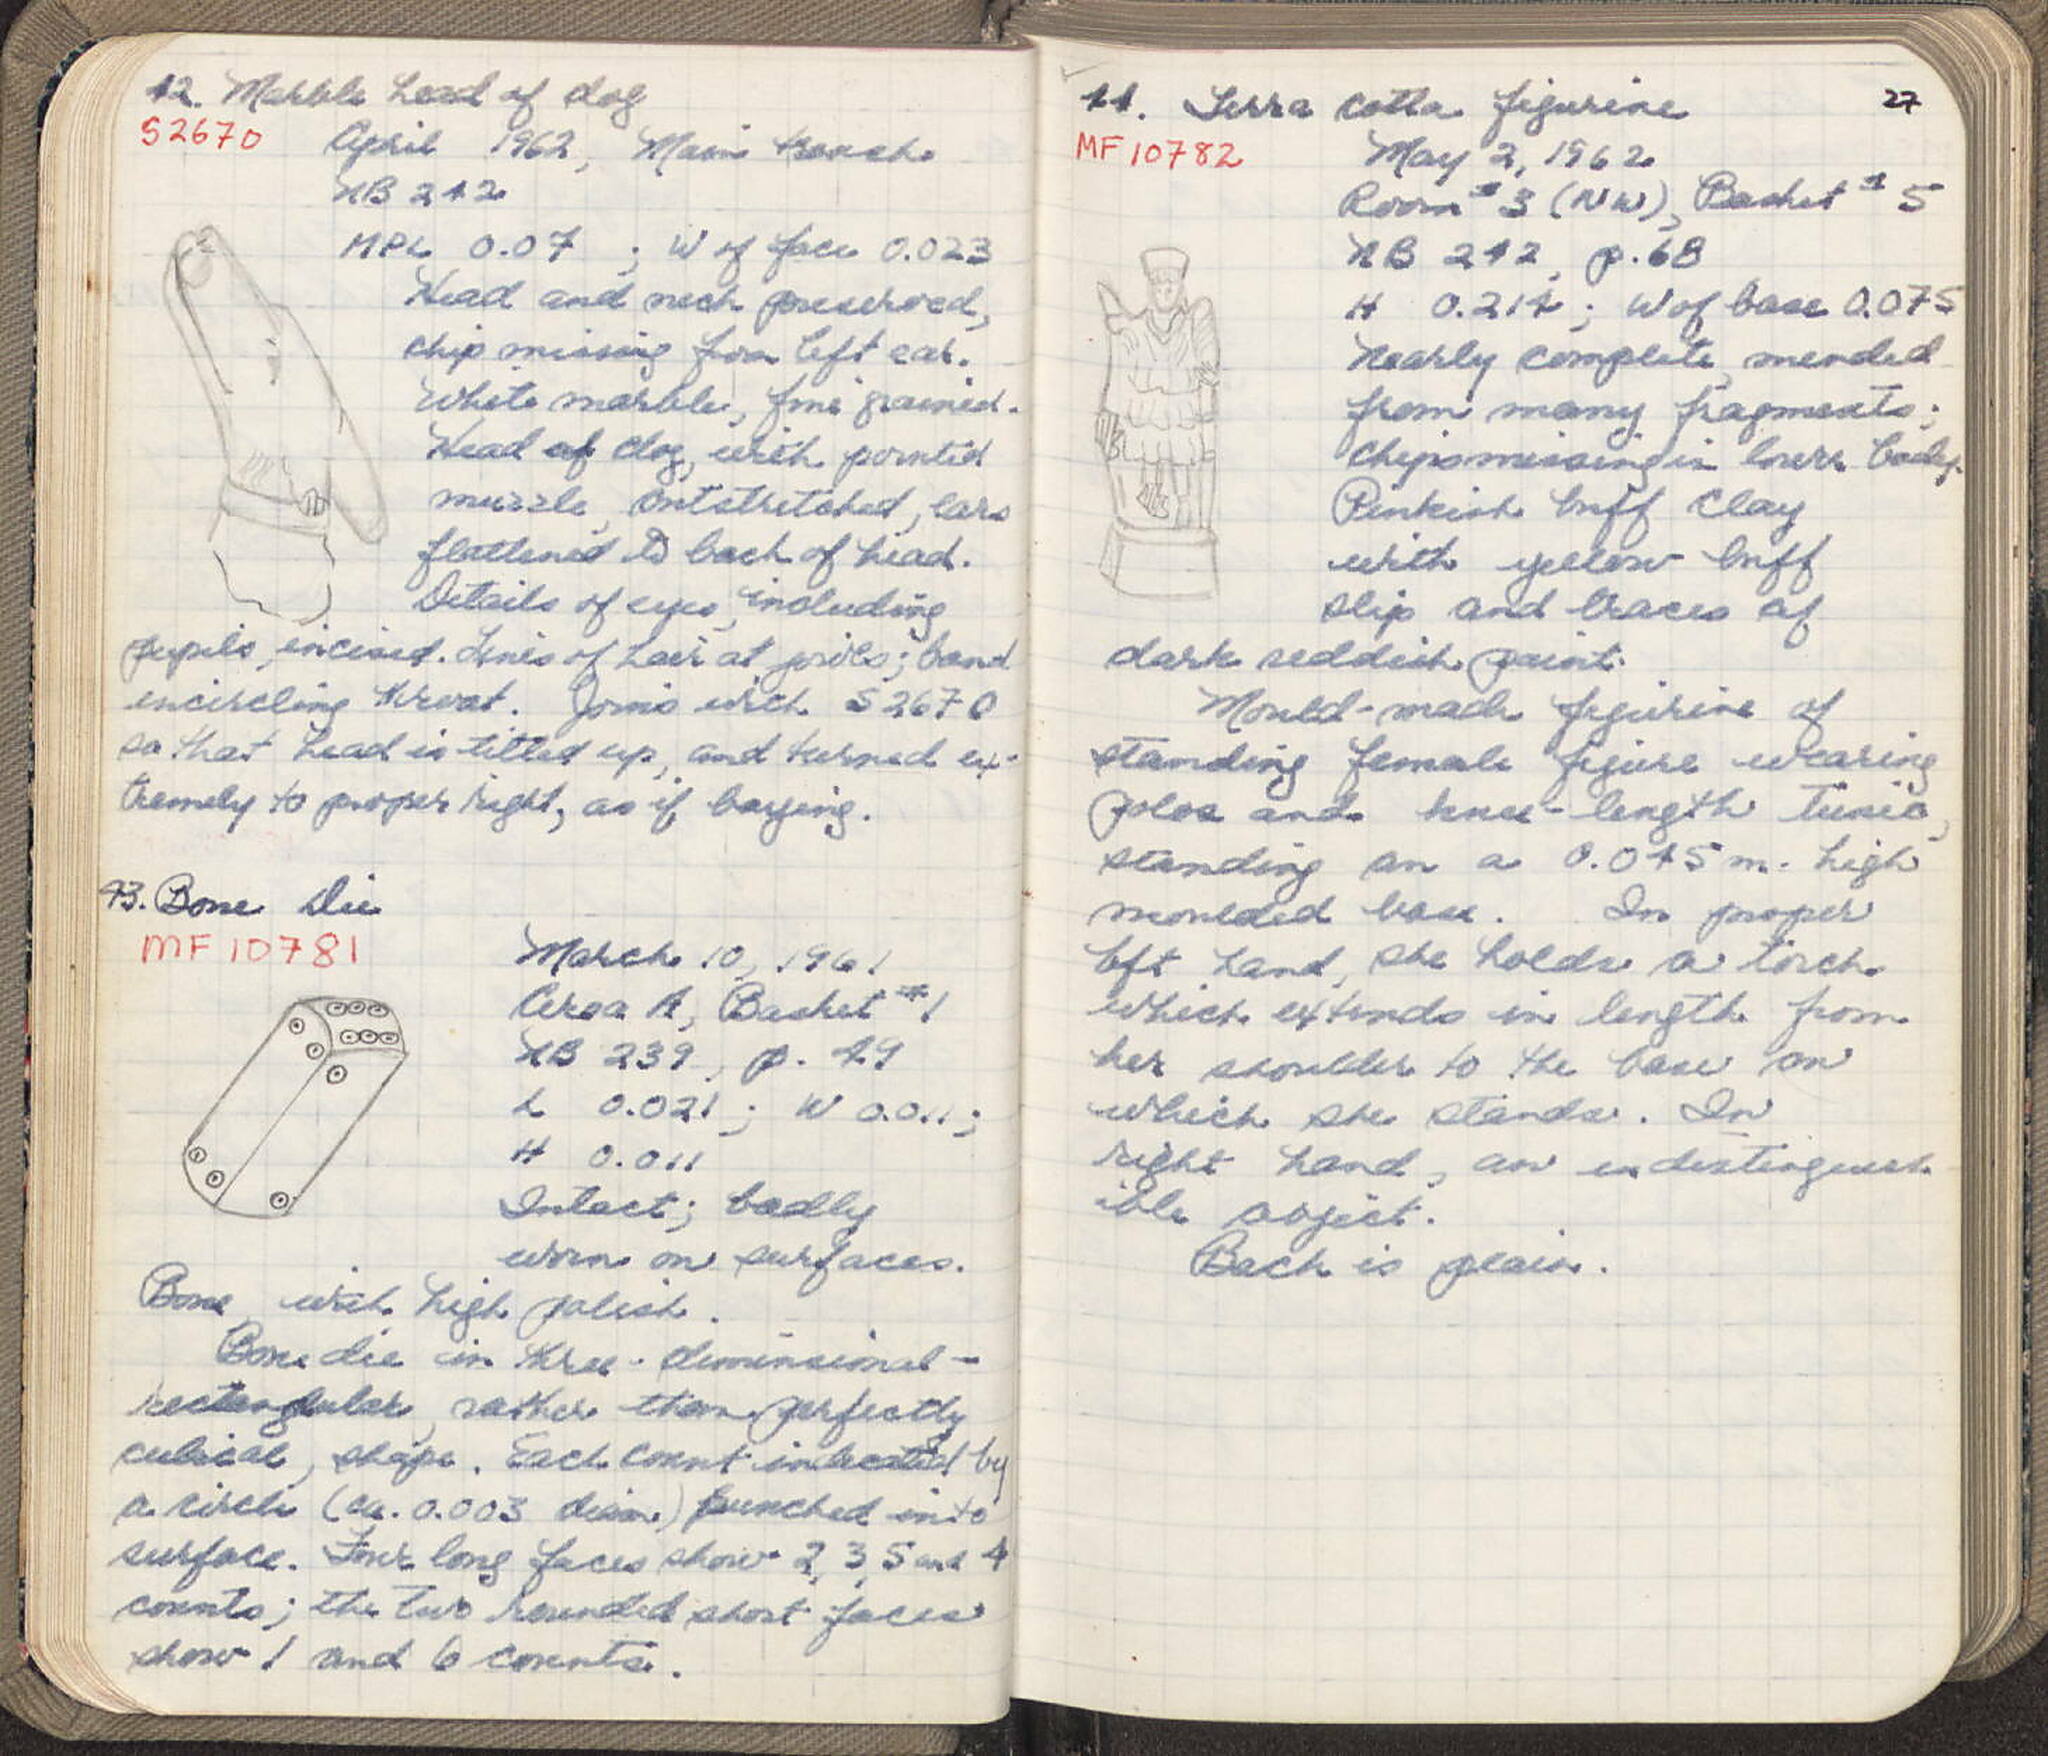 42. Marble head of dog
S2670
April 1962, Main trench
NB 242
MPL 0.07 ; W of face 0.023
Head and neck preserved,
chip missing from left ear.
White marble, fine grained.
Head of dog, with pointed
muzzle, outstretched, ears
flattened to back of head.
Details of eyes, including
pupils, incised. Lines of hair at jowls; band
encircling throat. Joins with S2670
so that head is tilted up, and turned ex-
tremely to proper right, as if baying.
43. Bone Die
MF 10781
March 10, 1961
Area A, Basket #1
NB 239, p. 49
L 0.021; W 0.011;
H 0.011
Intact; badly
worn on surfaces.
Bone with high polish.
Bone die in three-dimensional-
rectangular, rather than perfectly
cubical, shape. Each count indicated by
a circle (ca. 0.003 diam.) punched into
surface. Four long faces show 2, 3, 5 and 4
counts; the two rounded short faces
show 1 and 6 counts.
27
44. Terra cotta figurine
MF 10782
May 2, 1962
Room #3 (NW), Basket #5
NB 242, p. 68
H 0.214; W of base 0.075
Nearly complete, mended
from many fragments;
chips missing in lower body.
Pinkish buff clay
with yellow buff
slip and traces of
dark reddish paint.
Mould-made figurine of
standing female figure wearing
polos and knee-length tunic,
standing on a 0.045 m. high
moulded base. In proper
left hand, she holds a torch
which extends in length from
her shoulder to the base on
which she stands. In
right hand, an indistinguish
ible object.
Back is plain.